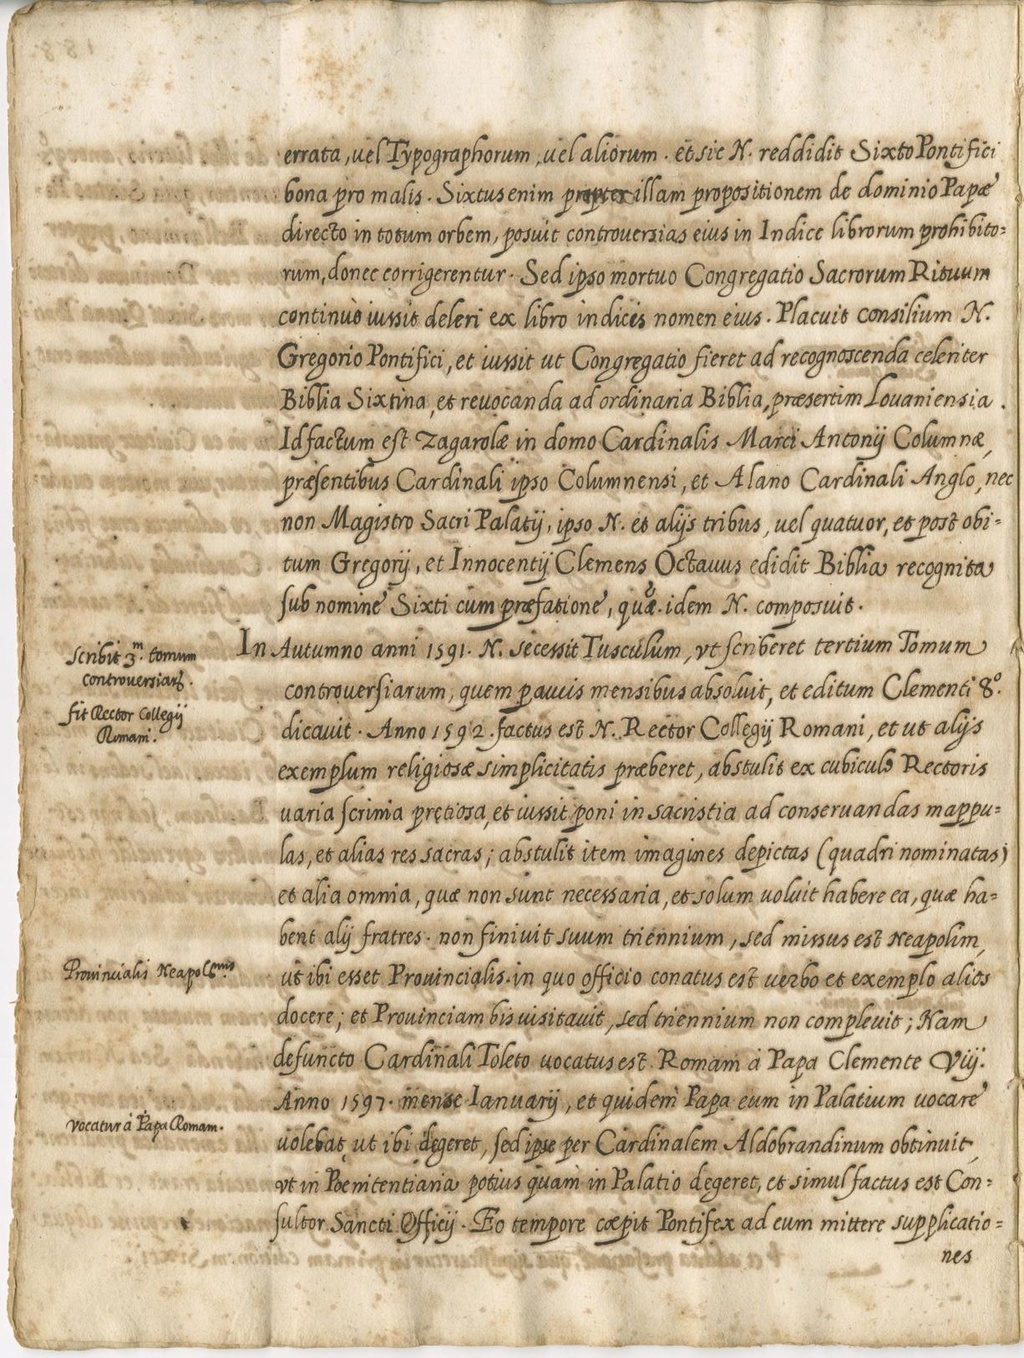 errata, uel Typographorum, uel aliorum. et sic N. reddidit Sixto Pontifici
bona pro malis. Sixtus enim propter illam propositionem de dominio Papæ
directo in totum orbem, posuit controuersias eius in Indice librorum prohibito=
rum, donec corrigerentur. Sed ipso mortuo Congregatio Sacrorum Rituum
continuò iussit deleri ex libro indicis nomen eius. Placuit consilium N.
Gregorio Pontifici, et iussit ut Congregatio fieret ad recognoscenda celeriter
Biblia Sixtina, et reuocanda ad ordinaria Biblia, præsertim Louaniensia.
Id factum est Zagarolæ in domo Cardinalis Marci Antonij Columnæ,
præsentibus Cardinali ipso Columnensi, et Alano Cardinali Anglo, nec
non Magistro Sacri Palatij, ipso N. et alijs tribus, uel quatuor, et post obi=
tum Gregorij, et Innocentij Clemens Octauus edidit Biblia recognita
sub nomine Sixti cum præfatione, quæ idem N. composuit.
In Autumno anni 1591. N. secessit Tusculum, vt scriberet tertium Tomum
Scribit 3.m tomum
controuersiarꝝ.
controuersiarum, quem paucis mensibus absoluit, et editum Clementi 8.o
fit Rector Collegij
Romani.
dicauit. Anno 1592. factus est N. Rector Collegij Romani, et ut alijs
exemplum religiosæ simplicitatis præberet, abstulit ex cubiculo Rectoris
uaria scrinia pretiosa, et iussit poni in sacristia ad conseruandas mappu=
las, et alias res sacras; abstulit item imagines depictas (quadri nominatas)
et alia omnia, quæ non sunt necessaria, et solum uoluit habere ea, quæ ha=
bent alij fratres. non finiuit suum triennium, sed missus est Neapolim,
Prouincialis Neapol.nus
ut ibi esset Prouincialis. in quo officio conatus est uerbo et exemplo alios
docere; et Prouinciam bis uisitauit, sed triennium non compleuit; Nam
defuncto Cardinali Toleto uocatus est Romam à Papa Clemente Viij.
Anno 1597. mense Ianuarij, et quidem Papa eum in Palatium uocare
vocatur à Papa Romam.
uolebat, ut ibi degeret, sed ipse per Cardinalem Aldobrandinum obtinuit,
vt in Poenitentiaria potius quàm in Palatio degeret, et simul factus est Con=
sultor Sancti Officij. Eo tempore cæpit Pontifex ad eum mittere supplicatio=
nes